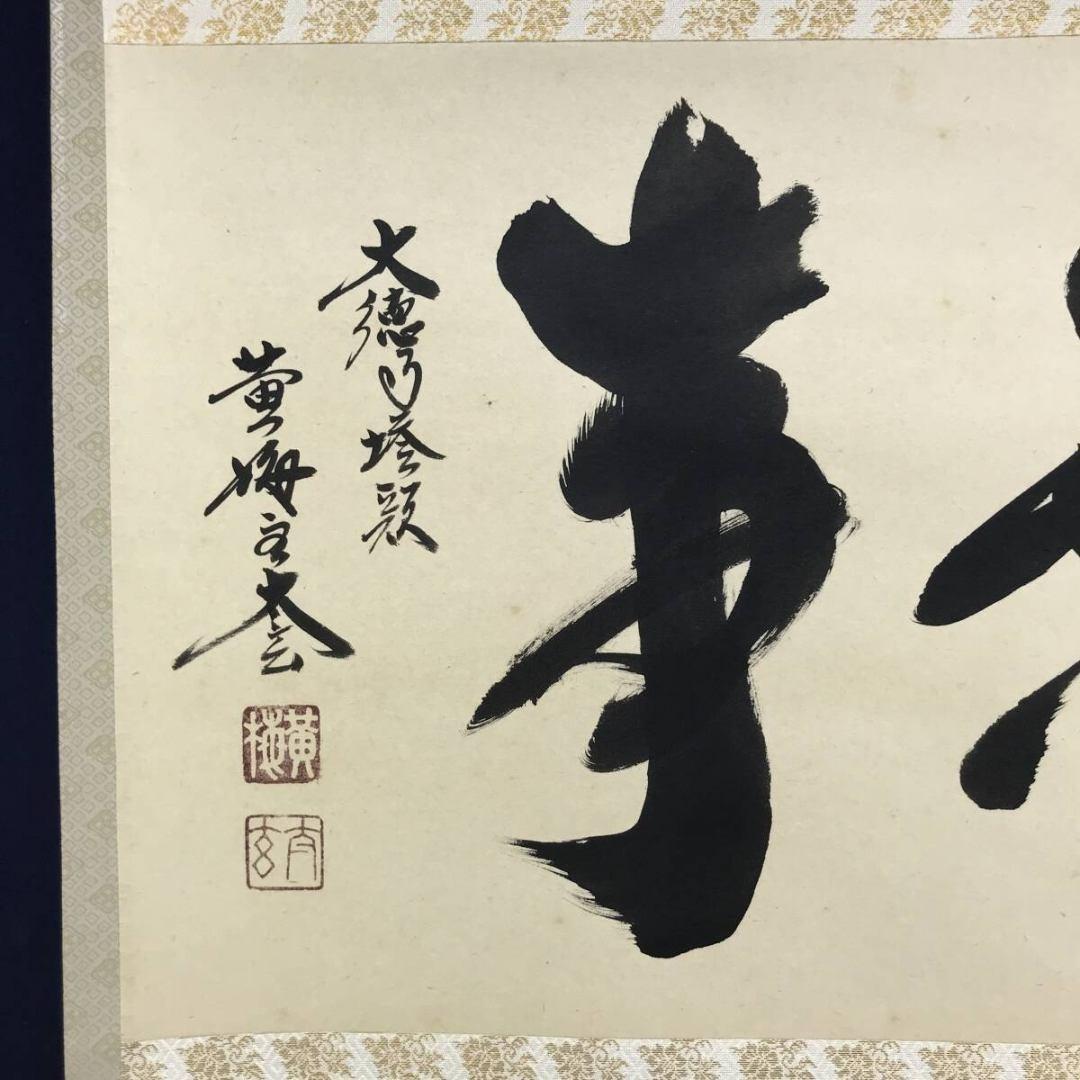 事
大徳寺塔頭
黄梅主太玄
黄梅
太玄